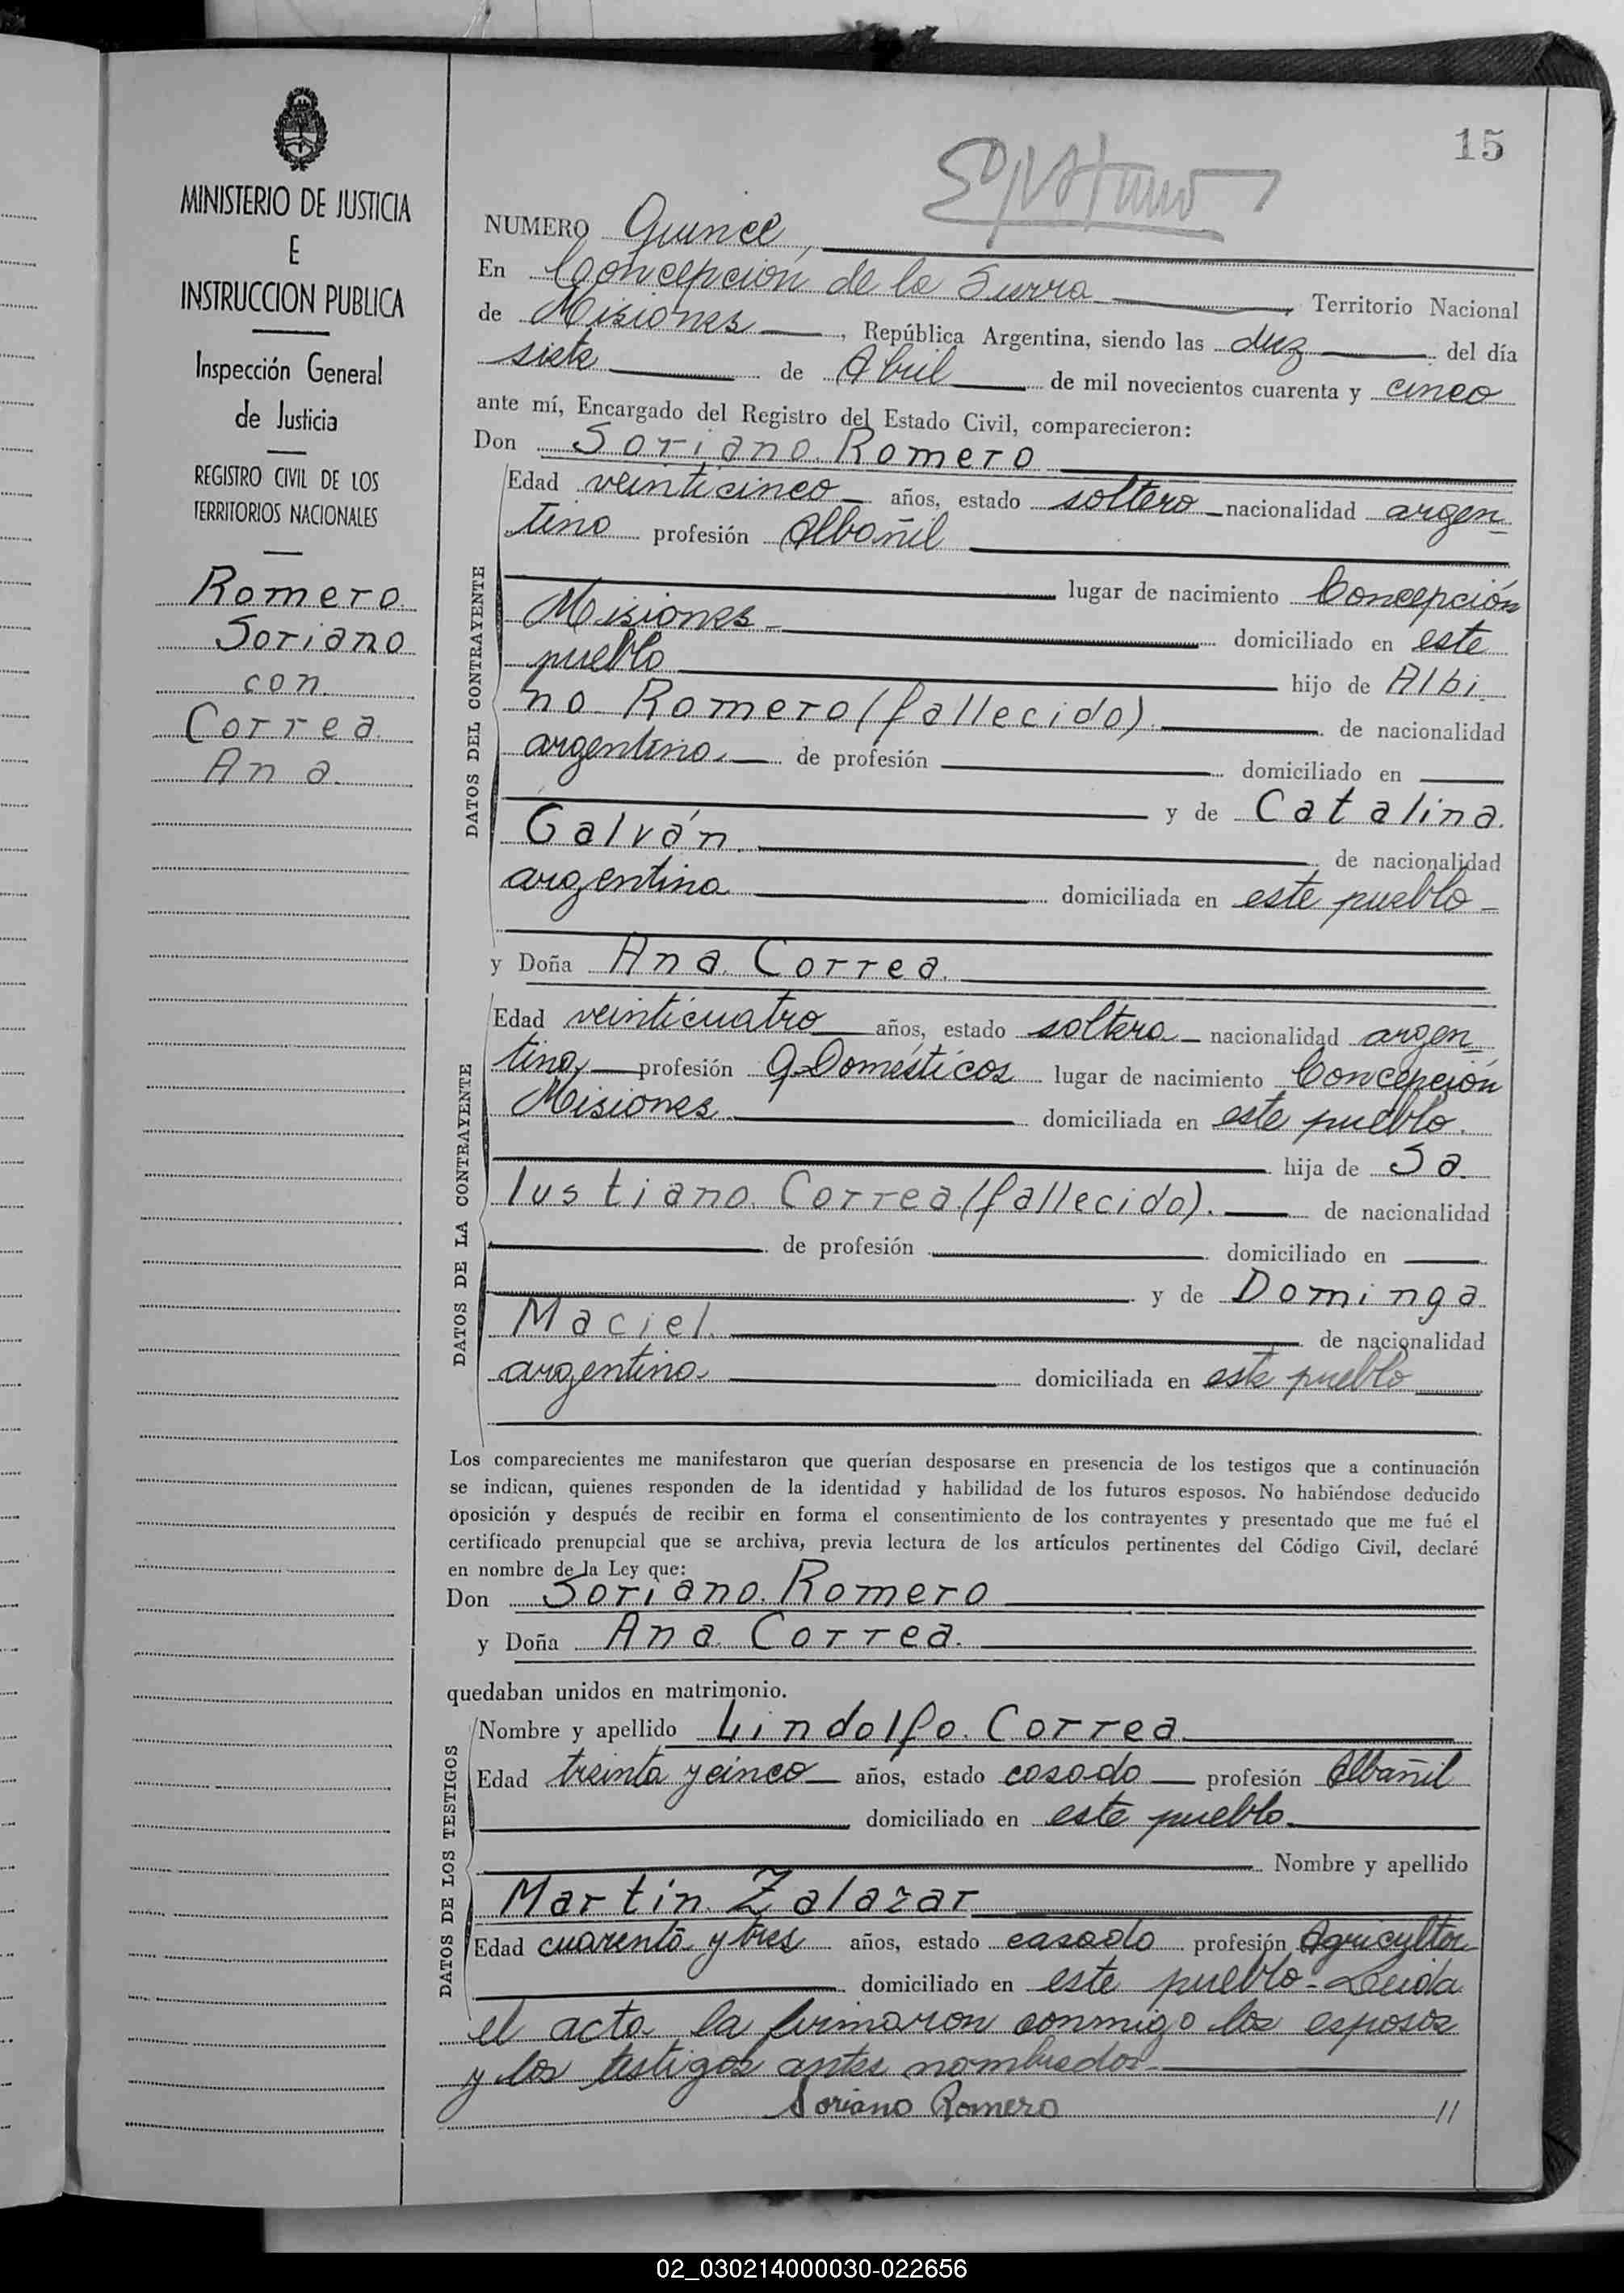 MINISTERIO DE JUSTICIA
E
INSTRUCCION PUBLICA
Inspección General
de Justicia
REGISTRO CIVIL DE LOS
TERRITORIOS NACIONALES
Romero
Soriano
con
Correa
Ana
15
NUMERO Quince
En Concepción de la Sierra Territorio Nacional
de Misiones, República Argentina, siendo las diez del día
siete de Abril de mil novecientos cuarenta y cinco
ante mí, Encargado del Registro del Estado Civil, comparecieron:
Don Soriano Romero
DATOS DEL CONTRAYENTE
Edad veinticinco años, estado soltero nacionalidad argen-
tino profesión Albañil
lugar de nacimiento Concepción
Misiones domiciliado en este
pueblo hijo de Albi
no Romero (fallecido) de nacionalidad
argentino. de profesión domiciliado en
y de Catalina
Galván. de nacionalidad
argentina domiciliada en este pueblo
y Doña Ana Correa.
DATOS DE LA CONTRAYENTE
Edad veinticuatro años, estado soltera nacionalidad argen-
tina, profesión Q. Domésticos lugar de nacimiento Concepción
Misiones domiciliada en este pueblo.
hija de Sa
lustiano Correa (fallecido). de nacionalidad
de profesión domiciliado en
y de Dominga
Maciel. de nacionalidad
argentina domiciliada en este pueblo
Los comparecientes me manifestaron que querían desposarse en presencia de los testigos que a continuación
se indican, quienes responden de la identidad y habilidad de los futuros esposos. No habiéndose deducido
oposición y después de recibir en forma el consentimiento de los contrayentes y presentado que me fué el
certificado prenupcial que se archiva, previa lectura de los artículos pertinentes del Código Civil, declaré
en nombre de la Ley que:
Don Soriano Romero
y Doña Ana Correa.
quedaban unidos en matrimonio.
DATOS DE LOS TESTIGOS
Nombre y apellido Lindolfo Correa
Edad treinta y cinco años, estado casado profesión Albañil
domiciliado en este pueblo.
Nombre y apellido
Martin Zalazar
Edad cuarenta y tres años, estado casado profesión Agricultor
domiciliado en este pueblo - Leida
el acta la firmaron conmigo los esposos
y los testigos antes nombrados.
Soriano Romero //
02_030214000030-022656